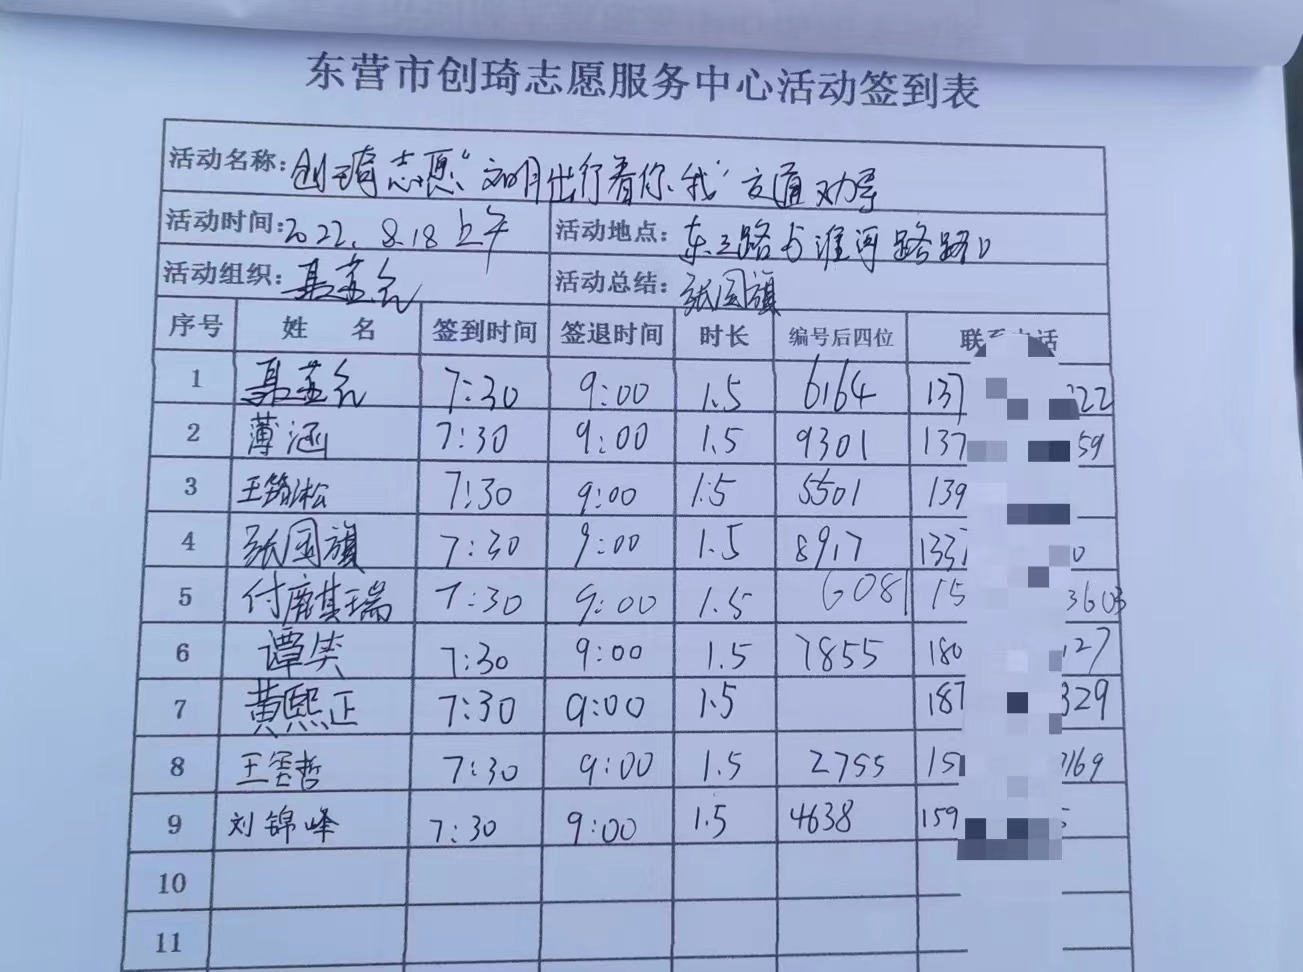 东营市创琦志愿服务中心活动签到表
活动名称:创琦志愿“文明出行看你我”交通劝导
活动时间:2022.8.18上午 活动地点:东三路与淮河路路口
活动组织:聂孟 活动总结:张国旗
序号 姓 名 签到时间 签退时间 时长 编号后四位 联系电话
1 聂孟 7:30 9:00 1.5 6164 137 222
2 薄涵 7:30 9:00 1.5 9301 137 59
3 王淞 7:30 9:00 1.5 5501 139
4 张国旗 7:30 9:00 1.5 8917 133 0
5 付麒瑞 7:30 9:00 1.5 6081 15 3603
6 谭笑 7:30 9:00 1.5 7855 180 127
7 黄熙正 7:30 9:00 1.5 187 329
8 王哲 7:30 9:00 1.5 2755 151 169
9 刘锦峰 7:30 9:00 1.5 4638 159
10
11